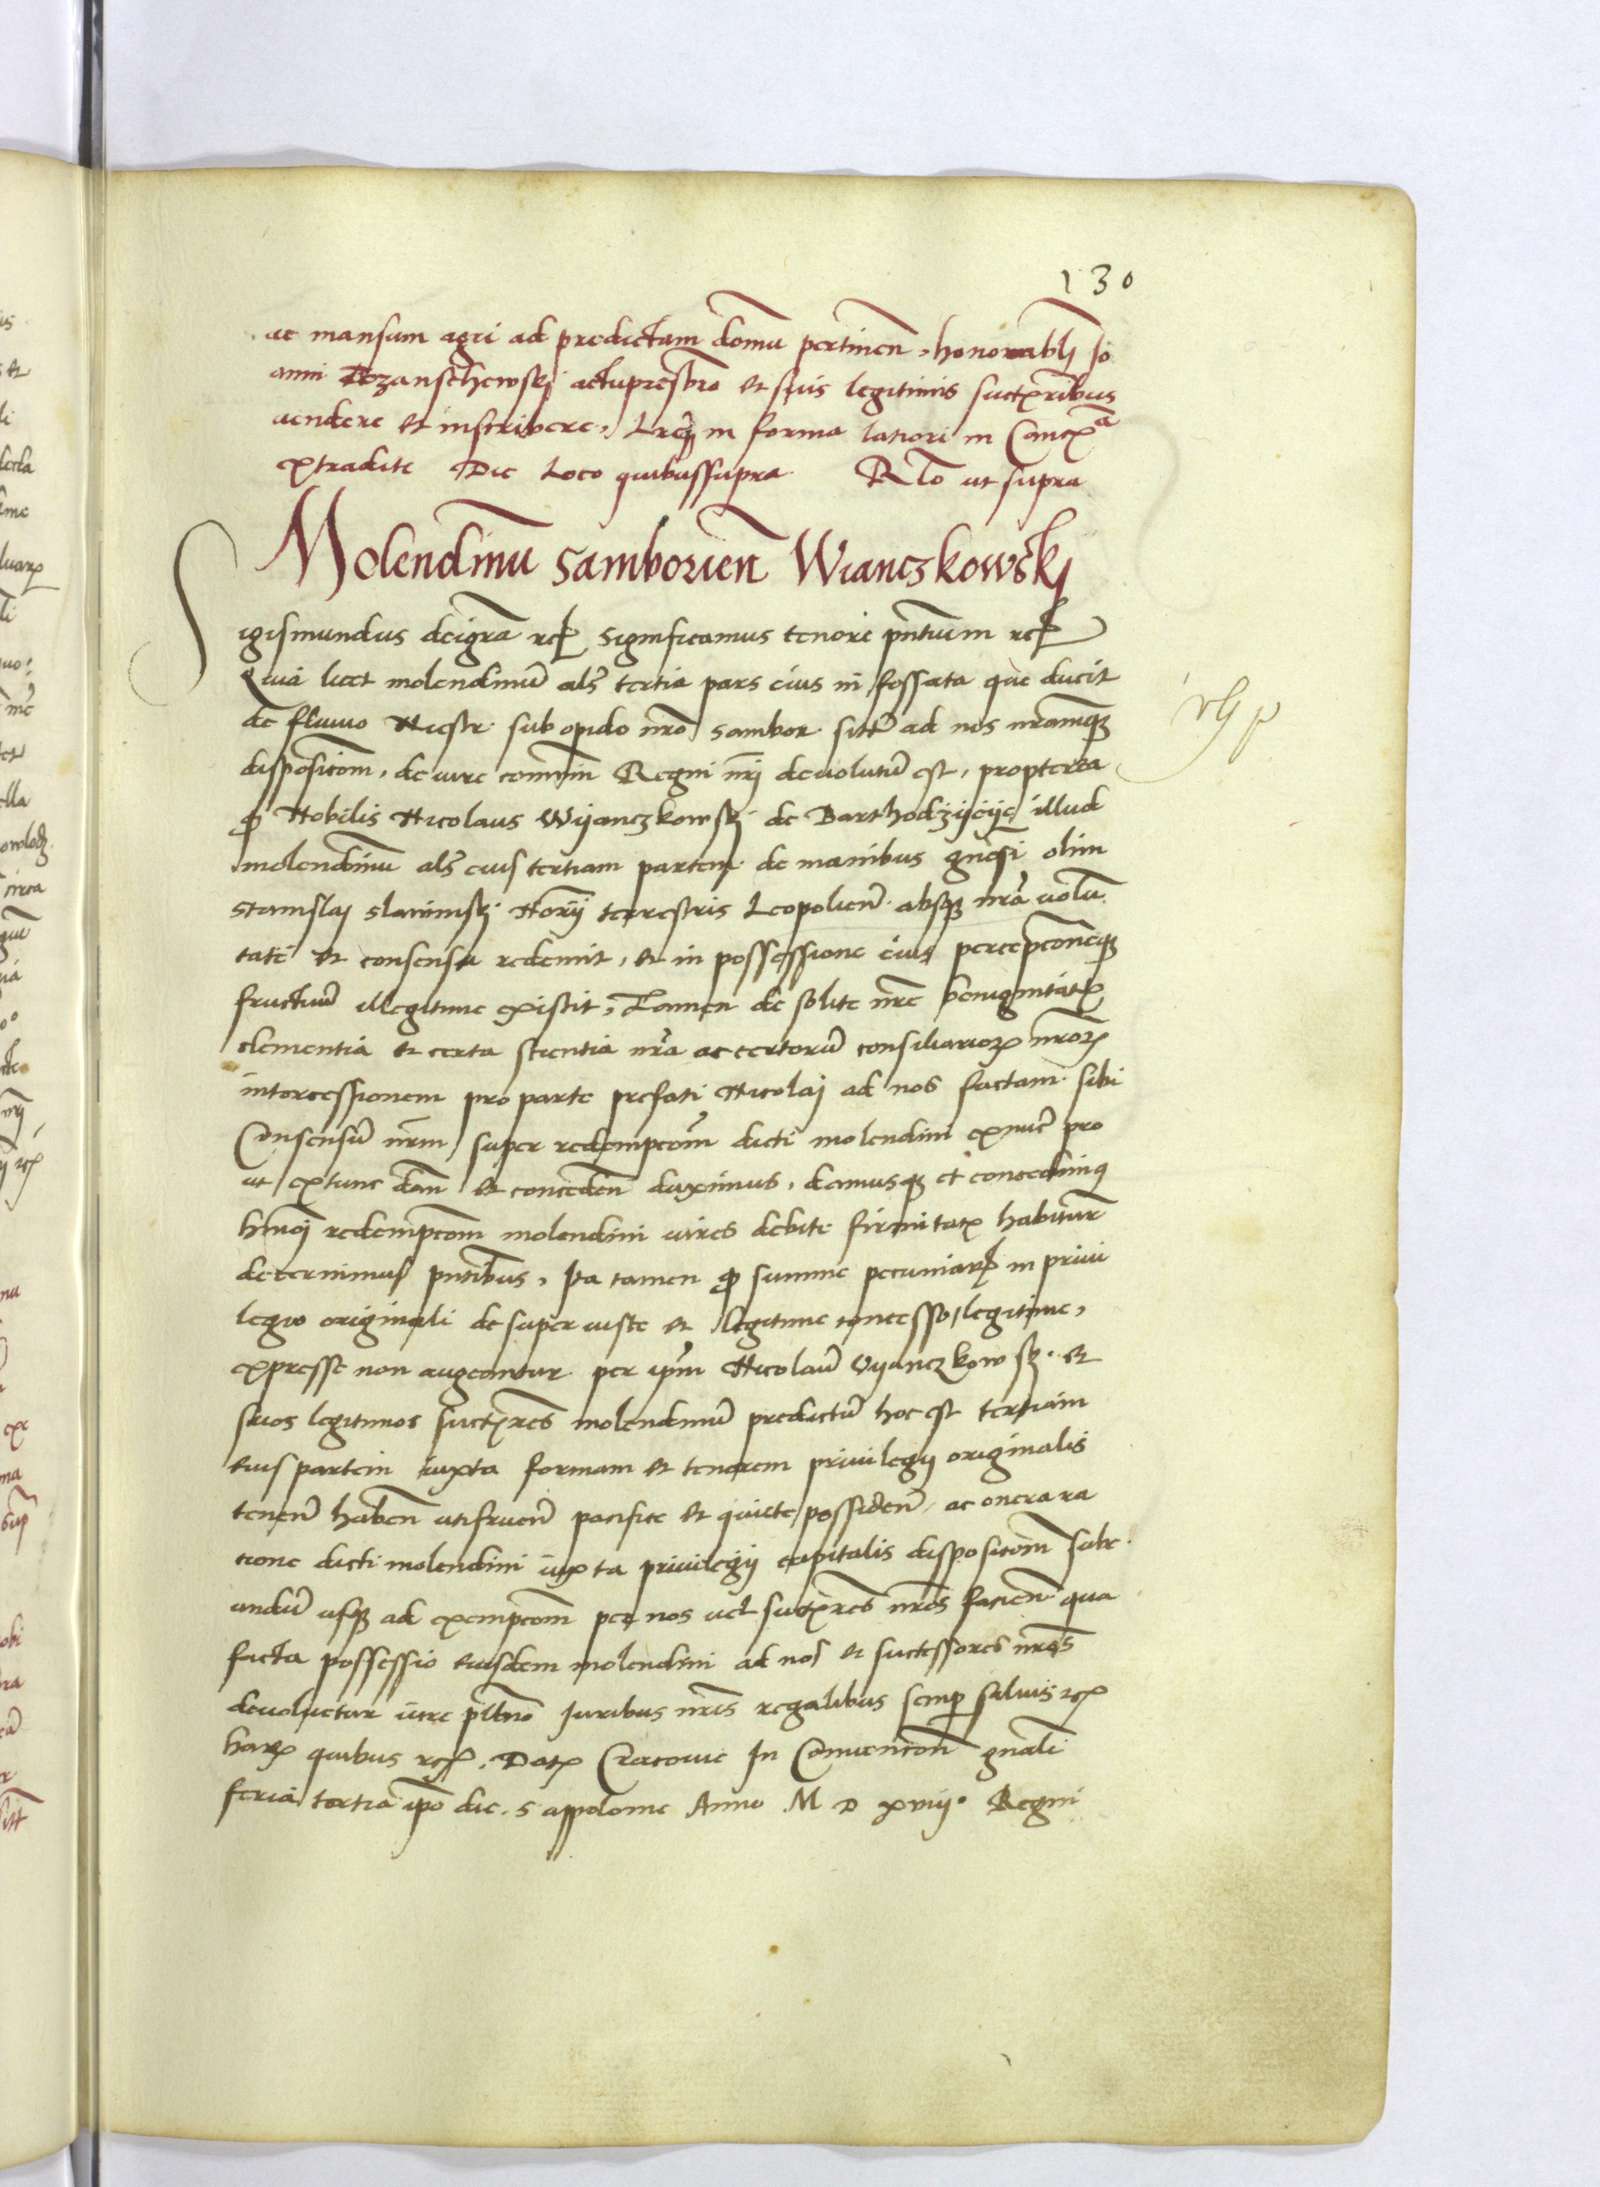 130
ac mansum agri ad predictam domu pertinen, honorabli Jo
anni Rozanschewskj actupresbro et suis legitimis succribus
vendere et inscribere, Lre in forma latiori in Canca
extradite Die Loco quibussupra Rlo ut supra
Molendinu Samborien Wianczkowskj
Sigismundus deigra rex Significamus tenore pntium rex
Quia licet molendinu als tertia pars eius in fossata que ducit
de fluuio Niestr sub opido nro Sambor sitt ad nos nramq
dispositom, de iure commin Regni nri deuolutu est, propterea
q Nobilis Nicolaus Wyanczkowskj de Barthodzyeÿe illud
molendinu als eius tertiam partem de manibus gnosi olim
Stanislaj slanimskj Norÿ terrestris Leopolien absq nra volu
tate et consensu redemit, et in possessione eius percepconeq
fructuu illegitime existit, Tamen de solite nre benignitatis
clementia et certa scientia nra ac certoru consiliarior nror
intercessionem pro parte prefati Nicolaj ad nos factam sibi
Consensu nrm super redempcom dicti molendini exnuc pro
ut extunc dan et conceden duximus, damusq et concedimus
hmoi redempcom molendini vires debite firmitatis habitura
decernimus pntibus, Ita tamen q summe pecuniar in priui
legio originali desuper iuste et legitime concesso legitime,
expresse non augeantur per ipm Nicolau Wyanczkowskj et
suos legitimos succres molendinu predictu hoc est tertiam
eius partem iuxta formam et tenorem priuilegij originalis
tenen haben utifruen pacifice et quiete possiden ac onera ra
tione dicti molendini iuxta priuilegij capitalis dispositom sube
undu usq ad exempcom per nos vel succres nros facien qua
facta possessio eiusdem molendini ad nos et successores nros
deuoluetur iure pleno Juribus nris regalibus semp saluis rex
harx quibus rex. Datx Cracouie In Conuencon gnali
feria tertia ipo die S appolonie Anno M D xviij Regni